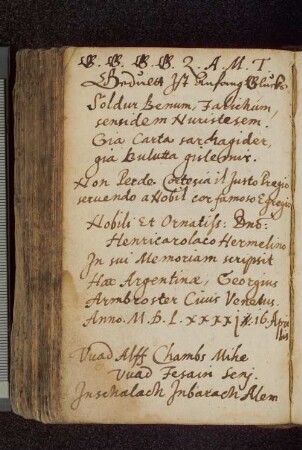 G. G. G. G. Z. A. M. T.
Gedult Ist Anfang Glück
Soldur Benum, Fatichum,
sensidem Nuristesem.
Gia Carta sarchagider,
gia Bulutta gislemir.
Non Perde Cortesia il Justo Pregio
seruendo a Nobil cor famoso Egregio
Nobili Et Ornatiss: Dno:
Henricarolaco Hermelino
In sui Memoriam scripsit
Hæ Argentinæ, Georgius
Armbroster Ciuis Venetus.
Anno. M. D. L. xxxx 16. Apri
lis
Vuad Alff Chambs Mihe
Vuad Fesain senj.
Inschalach Inbarach Alem